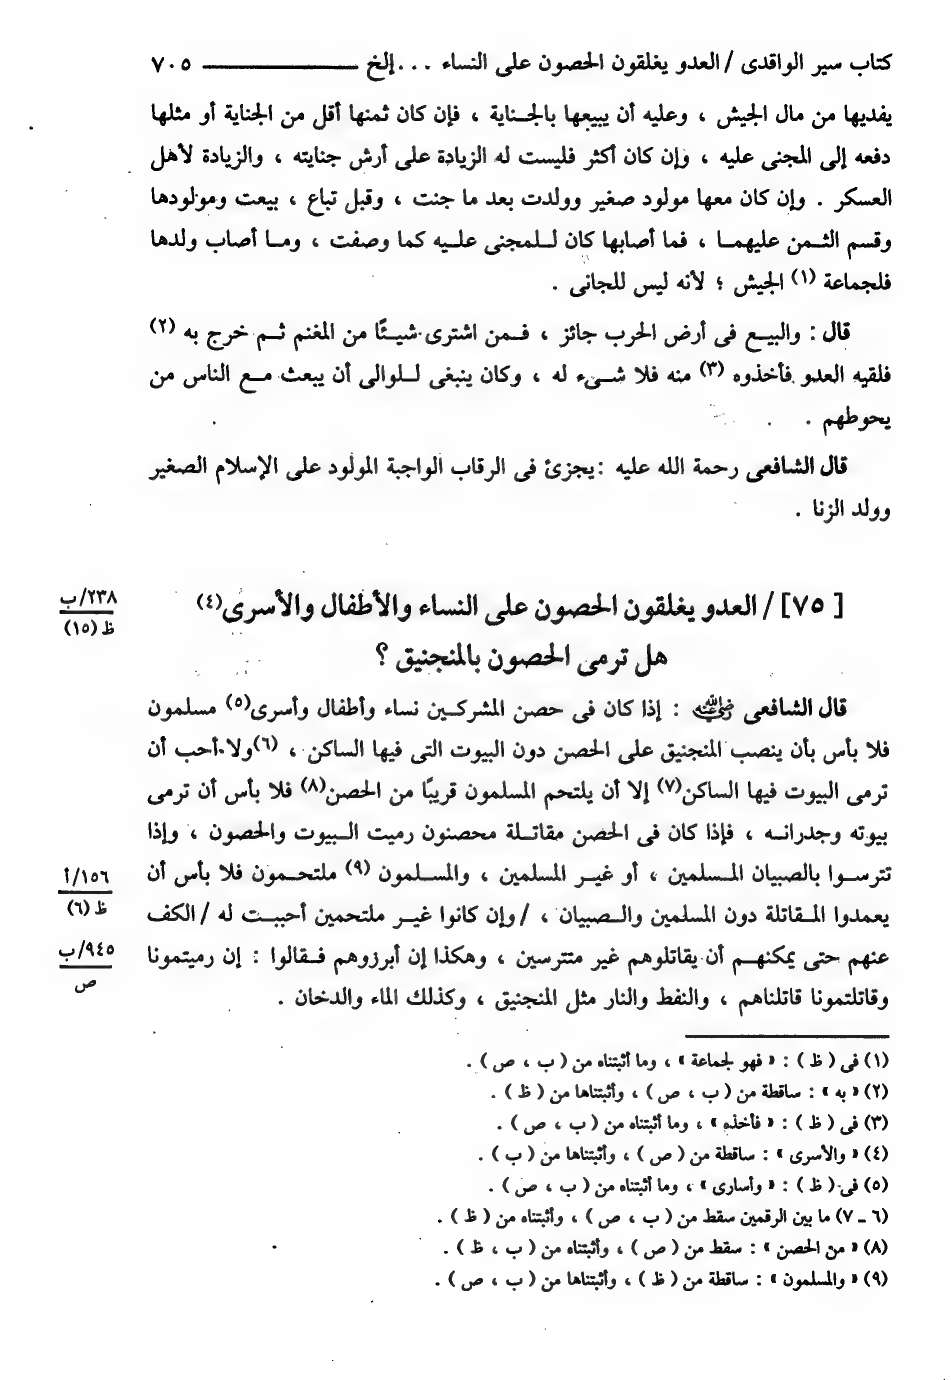 كتاب سير الواقدى / العدو يغلقون الحصون على النساء . . . إلخ ــــــــــــــــ ٧٠٥
يفديها من مال الجيش ، وعليه أن يبيعها بالجـناية ، فإن كان ثمنها أقل من الجناية أو مثلها
دفعه إلى المجنى عليه ، وإن كان أكثر فليست له الزيادة على أرش جنايته ، والزيادة لأهل
العسكر . وإن كان معها مولود صغير وولدت بعد ما جنت ، وقبل تباع ، بيعت ومولودها
وقسم الثـمن عليهمـا ، فما أصابها كان لـلمجنى علـيه كما وصفت ، ومـا أصاب ولدها
فلجماعة (١) الجيش ؛ لأنه ليس للجانى .
قال : والبيـع فى أرض الحرب جائز ، فـمن اشترى شيـئًا من المغنم ثـم خرج به (٢)
فلقيه العدو فأخذوه (٣) منه فلا شـىء له ، وكان ينبغى لـلوالى أن يبعث مـع الناس من
يحوطهم .
قال الشافعى رحمة الله عليه : يجزئ فى الرقاب الواجبة المولود على الإسلام الصغير
وولد الزنا .
٢٣٨/ب
ظ (١٥)
[ ٧٥] / العدو يغلقون الحصون على النساء والأطفال والأسرى(٤)
هل ترمى الحصون بالمنجنيق ؟
قال الشافعى رضي الله عنه : إذا كان فى حصن المشركـين نساء وأطفال وأسرى(٥) مسلمون
فلا بأس بأن ينصب المنجنيق على الحصن دون البيوت التى فيها الساكن ، (٦)ولا أحب أن
ترمى البيوت فيها الساكن(٧) إلا أن يلتحم المسلمون قريبًا من الحصن(٨) فلا بأس أن ترمى
بيوته وجدرانـه ، فإذا كان فى الحصن مقاتـلة محصنون رميت الـبيوت والحصون ، وإذا
تترسـوا بالصبيان المـسلمين ، أو غيـر المسلمين ، والمسـلمون (٩) ملتحـمون فلا بأس أن
١٥٦/أ
ظ (٦)
يعمدوا المـقاتلة دون المسلمين والـصبيان ، / وإن كانوا غيـر ملتحمين أحببـت له / الكف
٩٤٥/ب
ص
عنهم حتى يمكنهـم أن يقاتلوهم غير متترسين ، وهكذا إن أبرزوهم فـقالوا : إن رميتمونا
وقاتلتمونا قاتلناهم ، والنفط والنار مثل المنجنيق ، وكذلك الماء والدخان .
(١) فى ( ظ ) : « فهو لجماعة » ، وما أثبتناه من ( ب ، ص ) .
(٢) « به » : ساقطة من ( ب ، ص ) ، وأثبتناها من ( ظ ) .
(٣) فى ( ظ ) : « فأخذه » ، وما أثبتناه من ( ب ، ص ) .
(٤) « والأسرى » : ساقطة من ( ص ) ، وأثبتناها من ( ب ) .
(٥) فى ( ظ ) : « وأسارى » ، وما أثبتناه من ( ب ، ص ) .
(٦ ـ ٧) ما بين الرقمين سقط من ( ب ، ص ) ، وأثبتناه من ( ظ ) .
(٨) « من الحصن » : سقط من ( ص ) ، وأثبتناه من ( ب ، ظ ) .
(٩) « والمسلمون » : ساقطة من ( ظ ) ، وأثبتناها من ( ب ، ص ) .